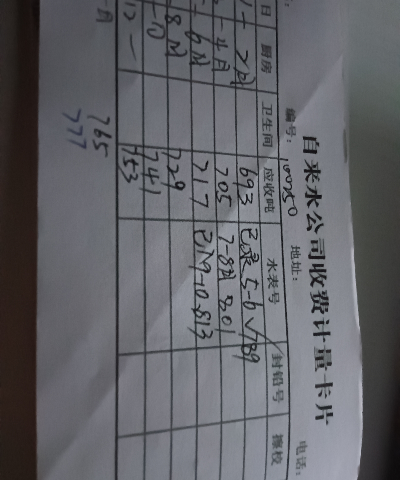 自来水公司收费计量卡片
编号: 100750 地址: 电话:
日 厨房 卫生间 应收吨 水表号 封铅号 擦校
693 已录 5-6 √789
4月 705 7-8月 801
6月 717 已 19-10 813
8月 729
10 741
12 753
765
777